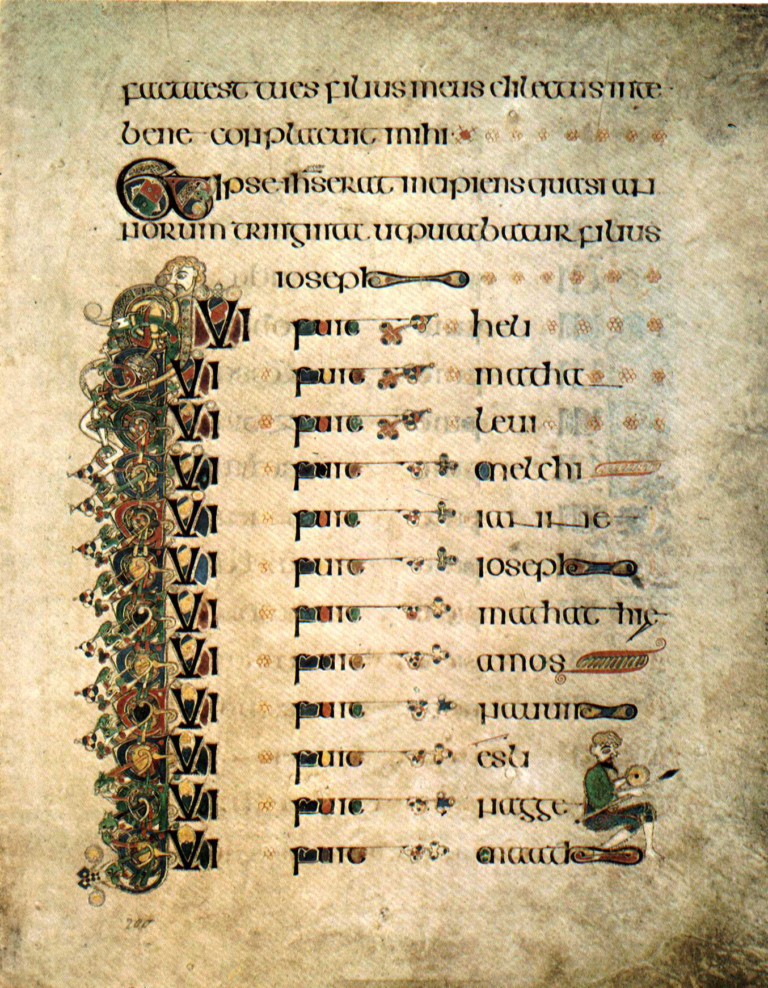 facta est tu es filius meus dilectus in te
bene conplacuit mihi
Et ipse ihs erat incipiens quasi an
norum triginta ut putabatur filius
ioseph
QVI fuit heli
QVI fuit matha
QVI fuit levi
QVI fuit melchi
QVI fuit ianne
QVI fuit ioseph
QVI fuit mathathie
QVI fuit amos
QVI fuit nauum
QVI fuit esli
QVI fuit nagge
QVI fuit maath
200